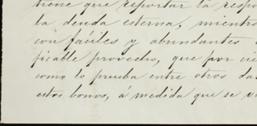 tiene que reportar la respo
la deuda eterna, mientra
con fáciles y abundantes
ficable provecho, que por cie
como lo prueba entre otros da
estos bonos, á medida que se v